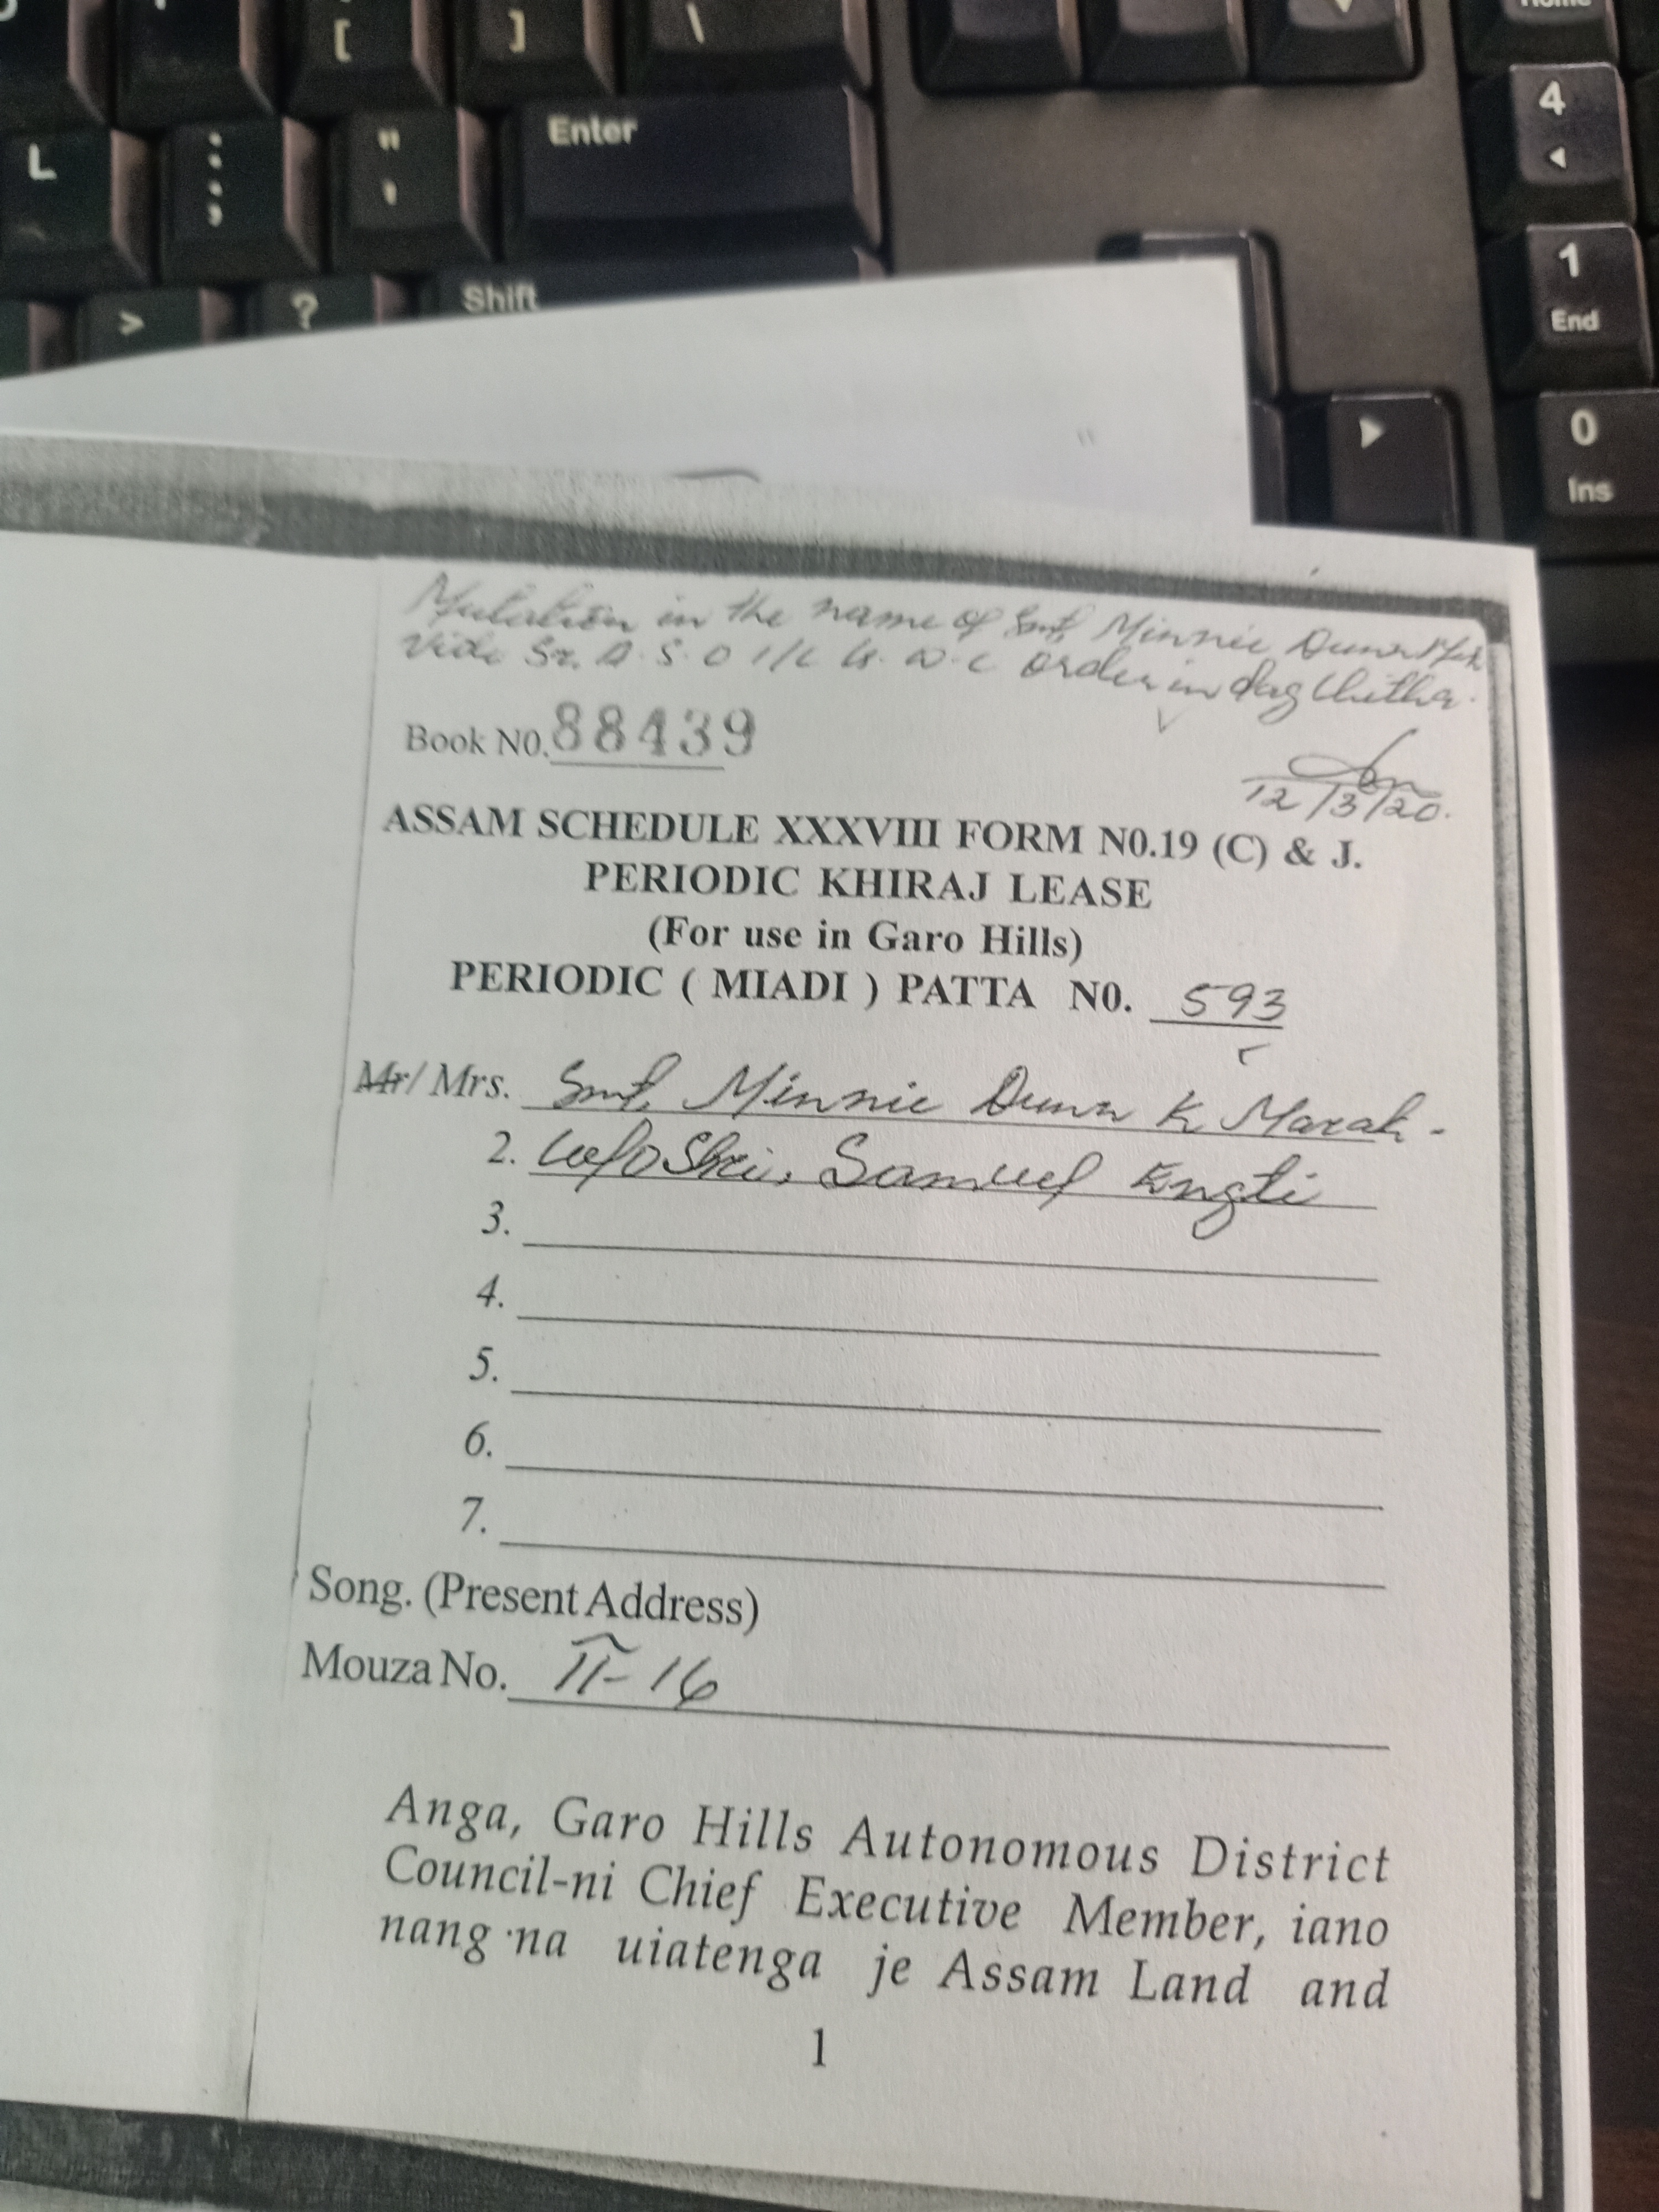 [
]
\
Home
L
:
;
"
'
Enter
4
1
End
>
?
Shift
0
Ins
Mutation in the name of Smt. Minnie Dunn K Mrk
Vide Sr. A.S.O I/C order in dag Chitha.
Book N0. 88439
12/3/20.
ASSAM SCHEDULE XXXVIII FORM N0.19 (C) & J.
PERIODIC KHIRAJ LEASE
(For use in Garo Hills)
PERIODIC ( MIADI ) PATTA N0. 593
Mr/ Mrs. Smt. Minnie Dunn K Marak -
2. W/o Shri. Samuel Engti
3.
4.
5.
6.
7.
Song. (Present Address)
Mouza No. II-16
Anga, Garo Hills Autonomous District
Council-ni Chief Executive Member, iano
nang·na uiatenga je Assam Land and
1